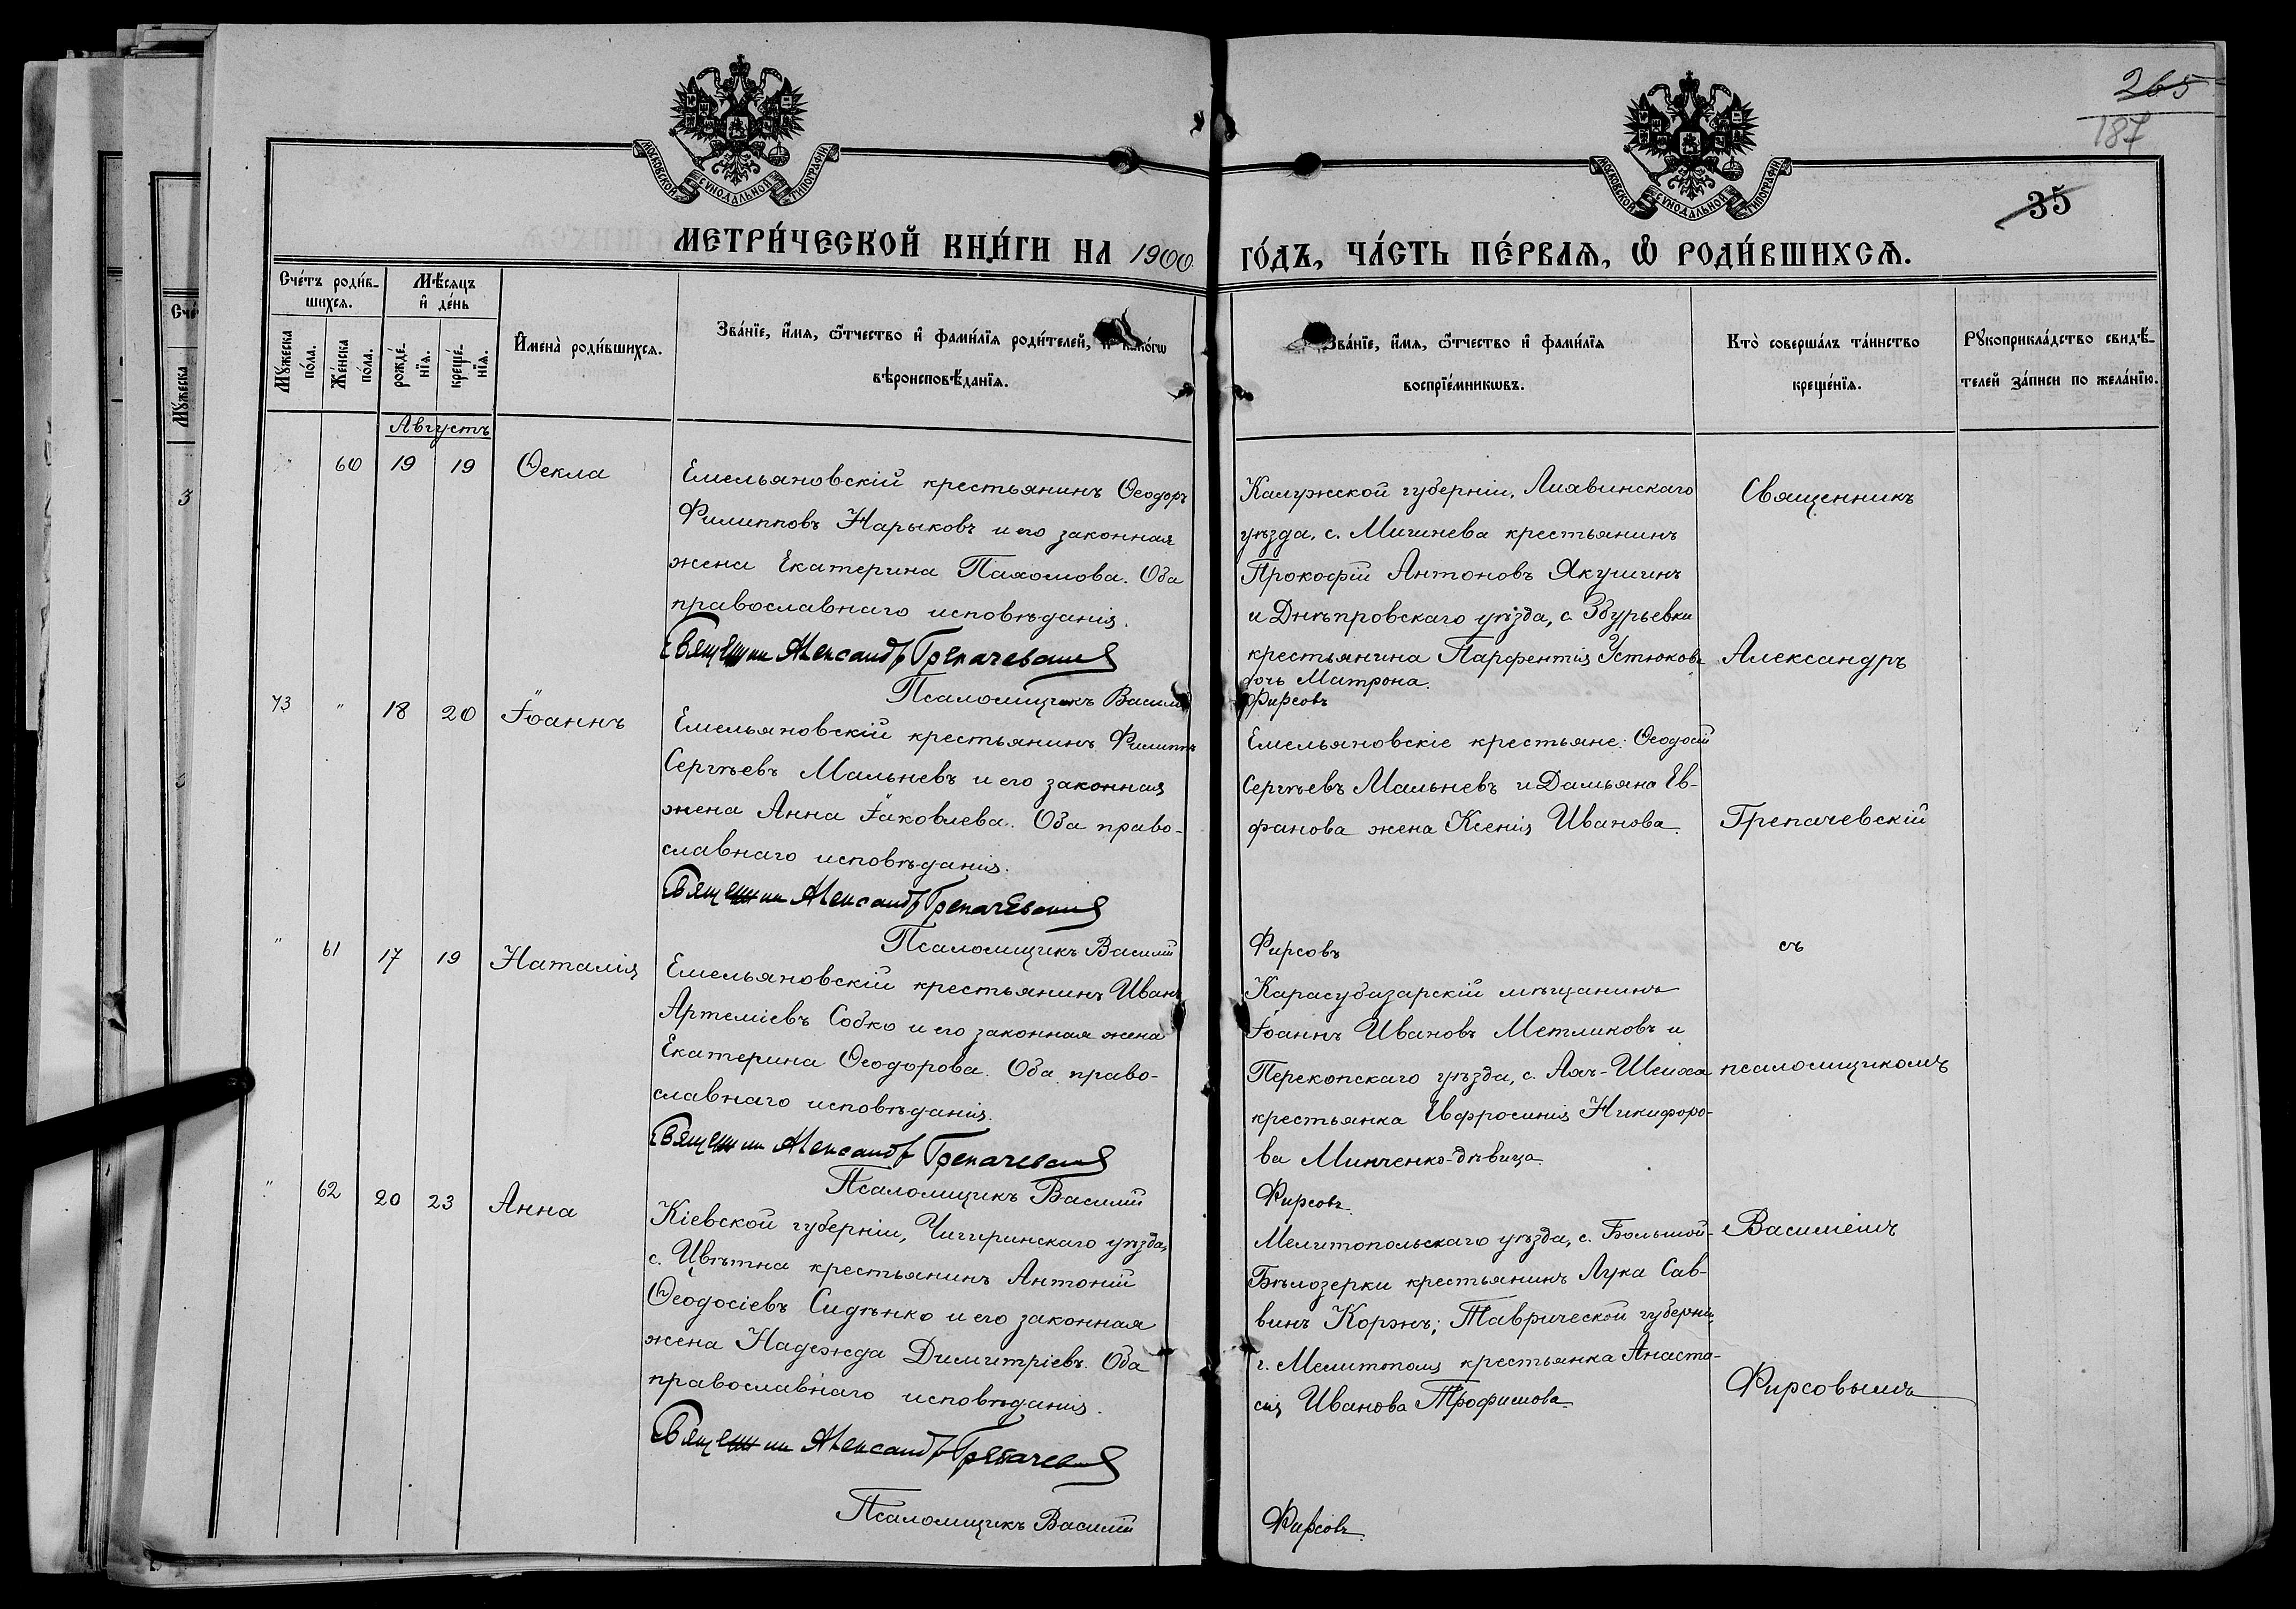 265
187
35
МОСКОВСКОЙ СУНОДАЛЬНОЙ ТИПОГРАФІИ
МОСКОВСКОЙ СУНОДАЛЬНОЙ ТИПОГРАФІИ
МЕТРИ́ЧЕСКОЙ КНИ́ГИ НА 1900 ГО́ДЪ, ЧА́СТЬ ПЕ́РВАѦ, Ѡ҆ РОДИ́ВШИХСѦ.
Сче́тъ роди́в-
шихсѧ.
Мꙋ́жеска
по́ла.
Же́нска
по́ла.
Мѣ́сѧцъ
и҆ де́нь
рожде́-
нїѧ.
креще́-
нїѧ.
И҆мена̀ роди́вшихсѧ.
Зва́нїе, и҆́мѧ, ѻ҆́тчество и҆ фами́лїѧ роди́телей, и҆ како́гѡ
вѣроисповѣ́данїѧ.
Зва́нїе, и҆́мѧ, ѻ҆́тчество и҆ фами́лїѧ
воспрїе́мникѡвъ.
Кто̀ соверша́лъ та́инство
креще́нїѧ.
Рꙋкоприкла́дство свидѣ́-
телей за́писи по жела́нїю.
Августъ
" 60 19 19 Ѳекла
Емельяновскій крестьянинъ Ѳеодоръ
Филипповъ Нарыковъ и его законная
жена Екатерина Пахомова. Оба
православнаго исповѣданія.
Священник Александр Грепачевский
Псаломщикъ Василій
Калужской губерніи, Лихвинскаго
уѣзда, с. Мишнева крестьянинъ
Прокофій Антоновъ Якушинъ
и Днѣпровскаго уѣзда, с. Збурьевки
крестьянина Парфентія Устюкова
дочь Матрона.
Фирсовъ
Священникъ
Александръ
73 " 18 20 Іоаннъ
Емельяновскій крестьянинъ Филиппъ
Сергѣевъ Мальневъ и его законная
жена Анна Іаковлева. Оба право-
славнаго исповѣданія.
Священник Александр Грепачевский
Псаломщикъ Василій
Емельяновскіе крестьяне: Ѳеодосій
Сергѣевъ Мальневъ и Дамьяна Ев-
фанова жена Ксенія Иванова.
Фирсовъ
Грепачевскій
съ
" 61 17 19 Наталія
Емельяновскій крестьянинъ Иванъ
Артеміевъ Собко и его законная жена
Екатерина Ѳеодорова. Оба право-
славнаго исповѣданія.
Священник Александр Грепачевский
Псаломщикъ Василій
Карасубазарскій мѣщанинъ
Іоаннъ Ивановъ Метликовъ и
Перекопскаго уѣзда, с. Аяч-Шеиха
крестьянка Евфросинія Никифоро-
ва Минченко-дѣвица.
Фирсовъ.
псаломщикомъ
" 62 20 23 Анна
Кіевской губерніи, Чигиринскаго уѣзда,
с. Цвѣтна крестьянинъ Антоній
Ѳеодосіевъ Сидѣнко и его законная
жена Надежда Димитріевъ. Оба
православнаго исповѣданія.
Священник Александр Грепачевский
Псаломщикъ Василій
Мелитопольскаго уѣзда, с. Большой-
Бѣлозерки крестьянинъ Лука Сав-
винъ Коржъ; Таврической губерніи,
г. Мелитополя крестьянка Анаста-
сія Иванова Трофимова.
Фирсовъ
Василіемъ
Фирсовымъ